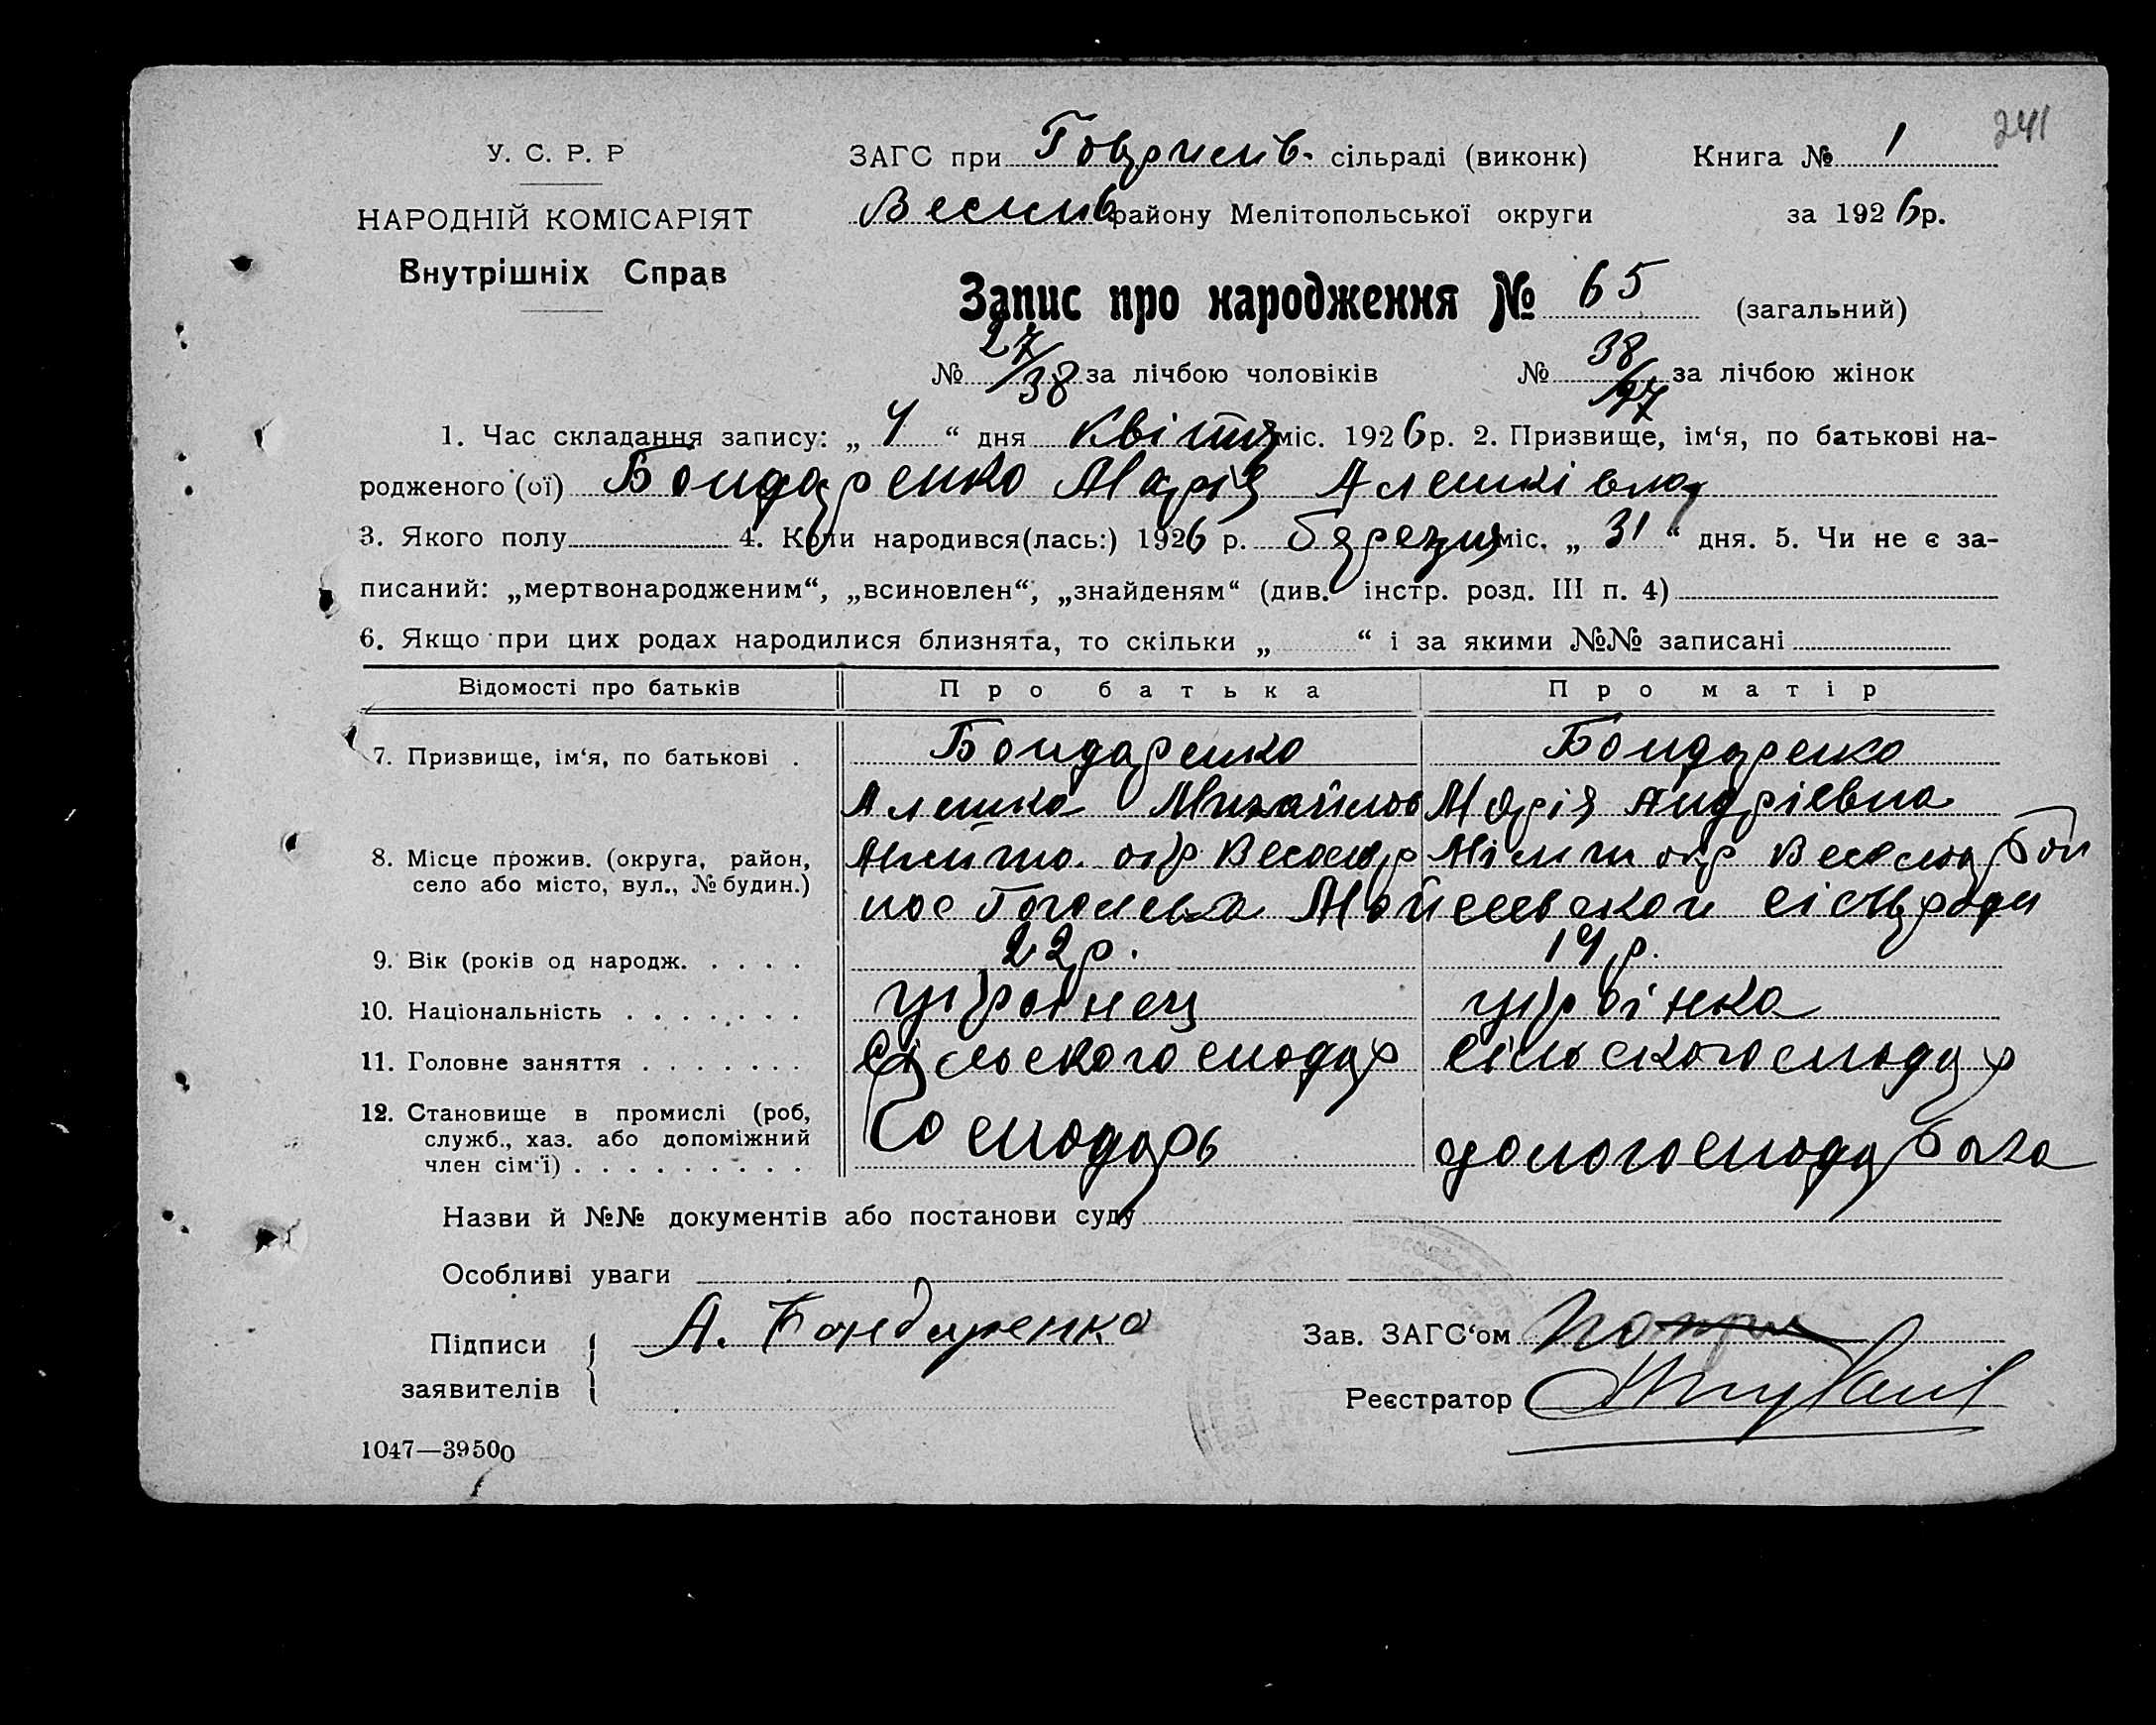 241
У. С. Р. Р
НАРОДНІЙ КОМІСАРІЯТ
Внутрішніх Справ
ЗАГС при Гаврилів. сільраді (виконк)
Книга № 1
Весилів району Мелітопольської округи
за 1926 р.
Запис про народження № 65 (загальний)
№ 27/38 за лічбою чоловіків № 38/27 за лічбою жінок
1. Час складання запису: „ 4 “ дня Квітня міс. 1926 р. 2. Призвище, ім‘я, по батькові на-
родженого (ої) Бондаренко Марія Алешківна
3. Якого полу 4. Коли народився(лась:) 1926 р. березня міс. „ 31 “ дня. 5. Чи не є за-
писаний: „мертвонародженим“, „всиновлен“, „знайденям“ (див. інстр. розд. III п. 4)
6. Якщо при цих родах народилися близнята, то скільки „ “ і за якими №№ записані
Відомості про батьків Про батька Про матір
7. Призвище, ім‘я, по батькові . Бондаренко Бондаренко
Алешка Михайлов Марія Андріевна
8. Місце прожив. (округа, район, окр Весело окр Весело
село або місто, вул., № будин.) пос
9. Вік (років од народж. . . . . 22 р. 19 р.
10. Національність . . . . . . . украінец украінка
11. Головне заняття . . . . . . . Сільскогосподар сільскогосподар
12. Становище в промислі (роб,
служб., хаз. або допоміжний Господарь домогосподарка
член сім‘ї) . . . . . . . . . .
Назви й №№ документів або постанови суду
Особливі уваги
Підписи А. Бондаренко Зав. ЗАГС‘ом
заявителів Реєстратор
1047—39500